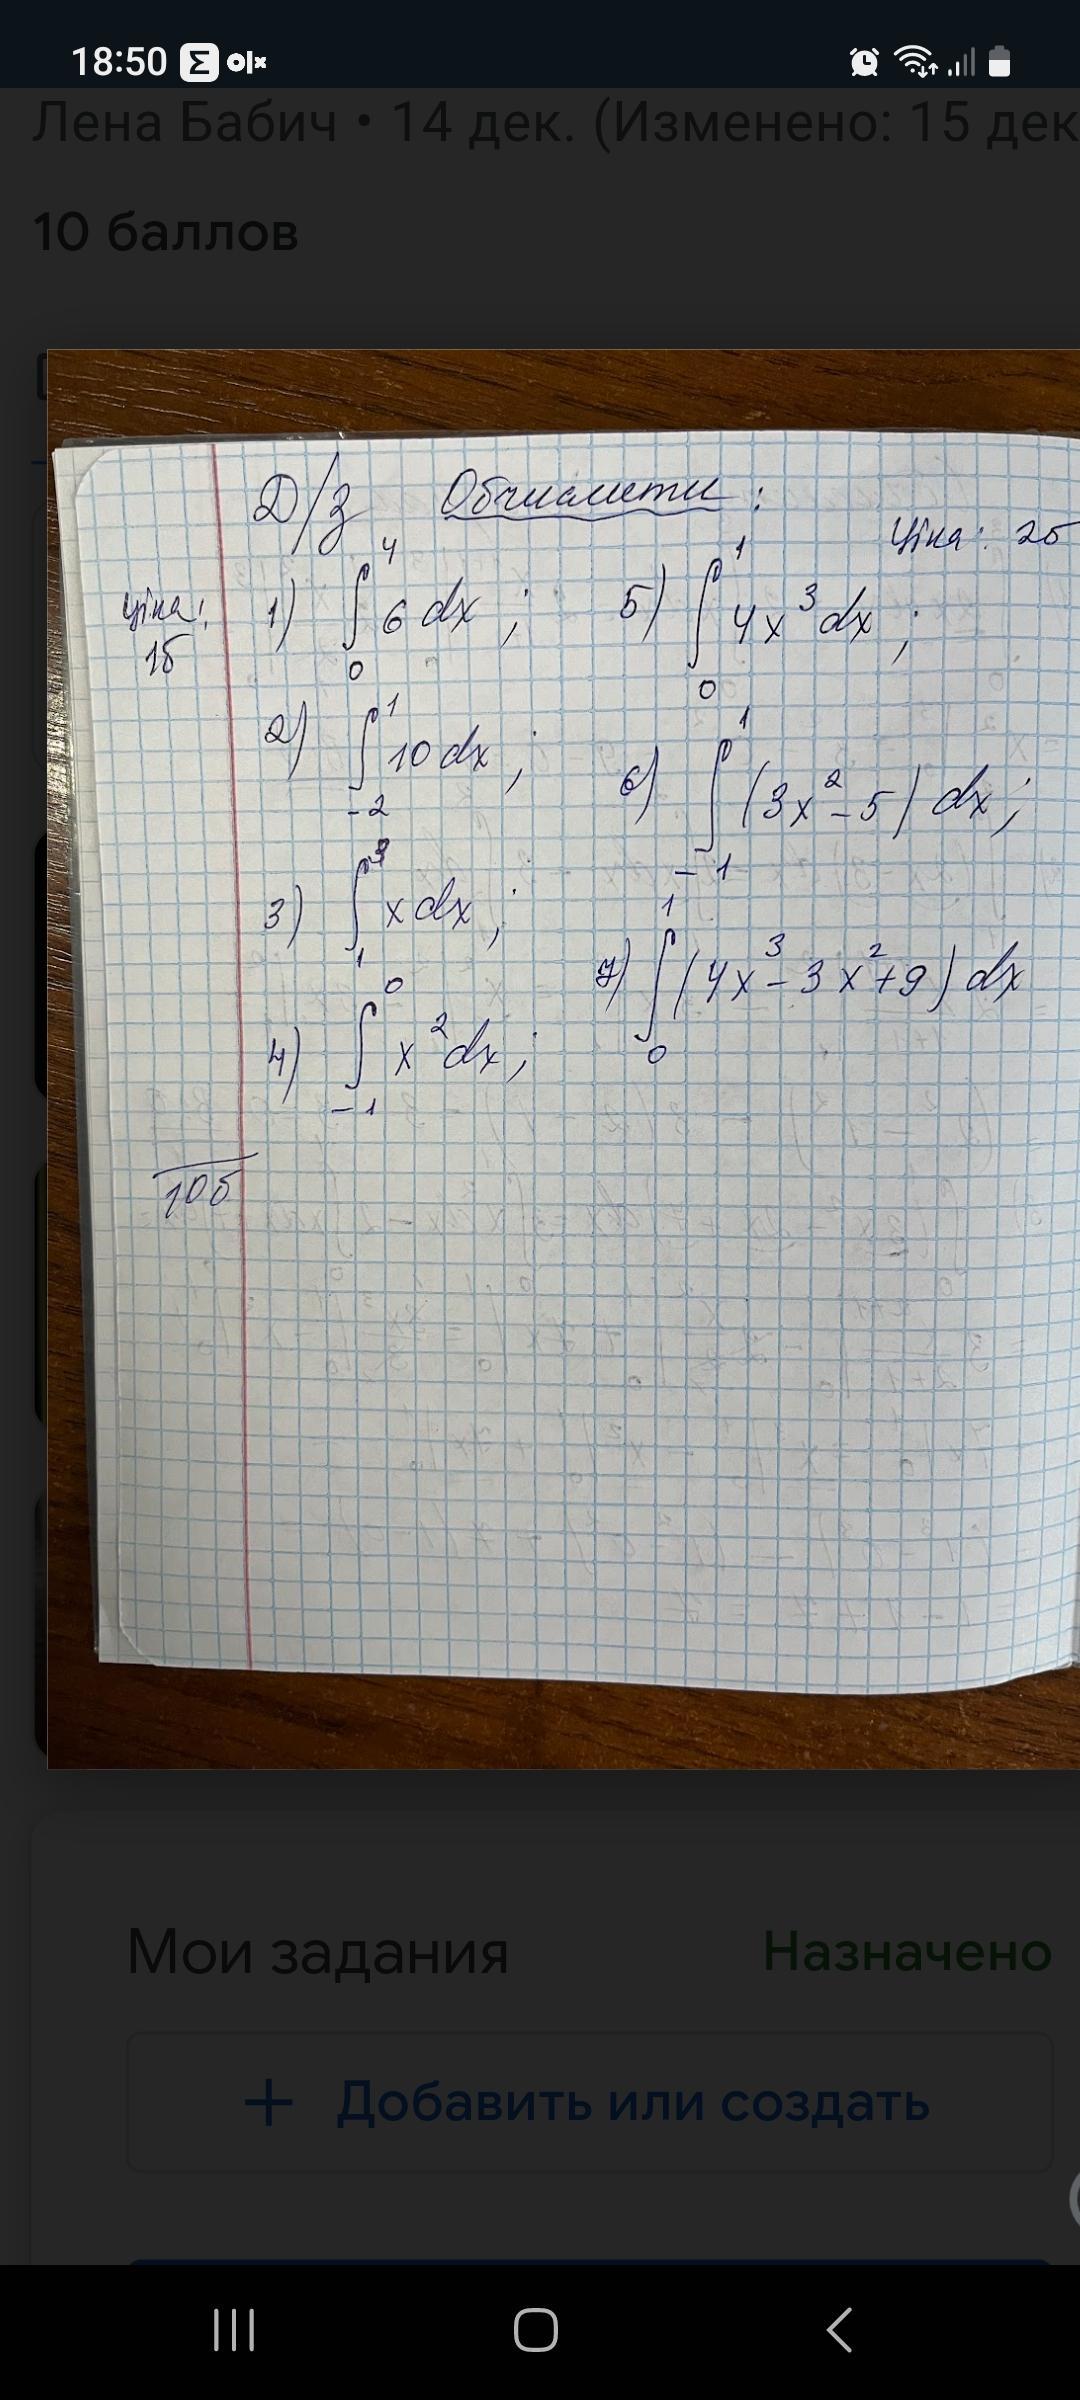 18:50 Σ o|x
Лена Бабич • 14 дек. (Изменено: 15 дек
10 баллов
Д/з Обчислити:
Ціна: 2б
Ціна:
1б
1) ∫₀⁴ 6 dx ;
2) ∫₋₂¹ 10 dx ;
3) ∫₁³ x dx ;
4) ∫₋₁⁰ x² dx ;
10б
5) ∫₀¹ 4x³ dx ;
6) ∫₋₁¹ (3x² - 5) dx ;
7) ∫₀¹ (4x³ - 3x² + 9) dx
Мои задания
Назначено
+ Добавить или создать